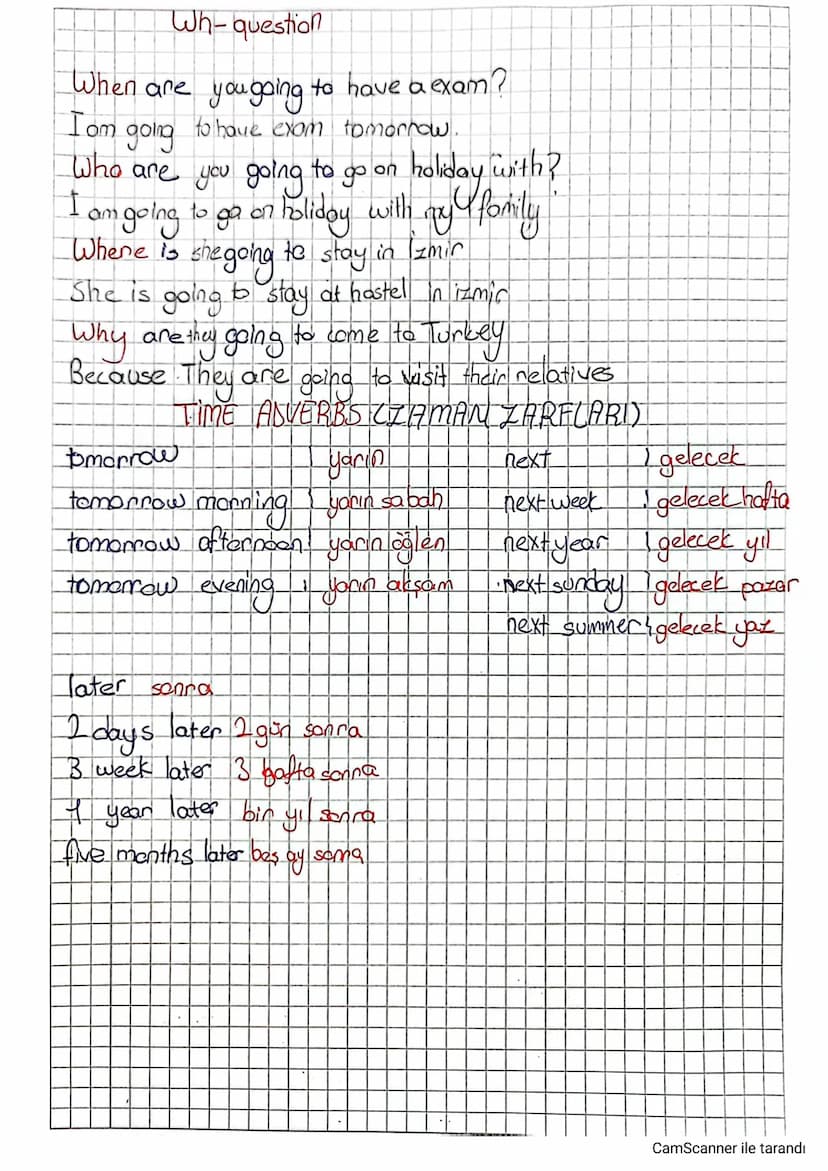 Wh-question
When are you going to have a exam?
I am going to have exam tomorrow.
Who are you going to go on holiday with?
I am going to go on holiday with my family
Where is she going to stay in İzmir
She is going to stay at hostel in izmir
Why are they going to come to Turkey
Because They are going to visit their relatives
TIME ADVERBS (ZAMAN ZARFLARI)
tomorrow | yarın next | gelecek
tomorrow morning | yarın sabah next week | gelecek hafta
tomorrow afternoon | yarın öğlen next year | gelecek yıl
tomorrow evening | yarın akşam next sunday | gelecek pazar
next summer | gelecek yaz
later sonra
2 days later 2 gün sonra
3 week later 3 hafta sonra
1 year later bir yıl sonra
five months later beş ay sonra
CamScanner ile tarandı